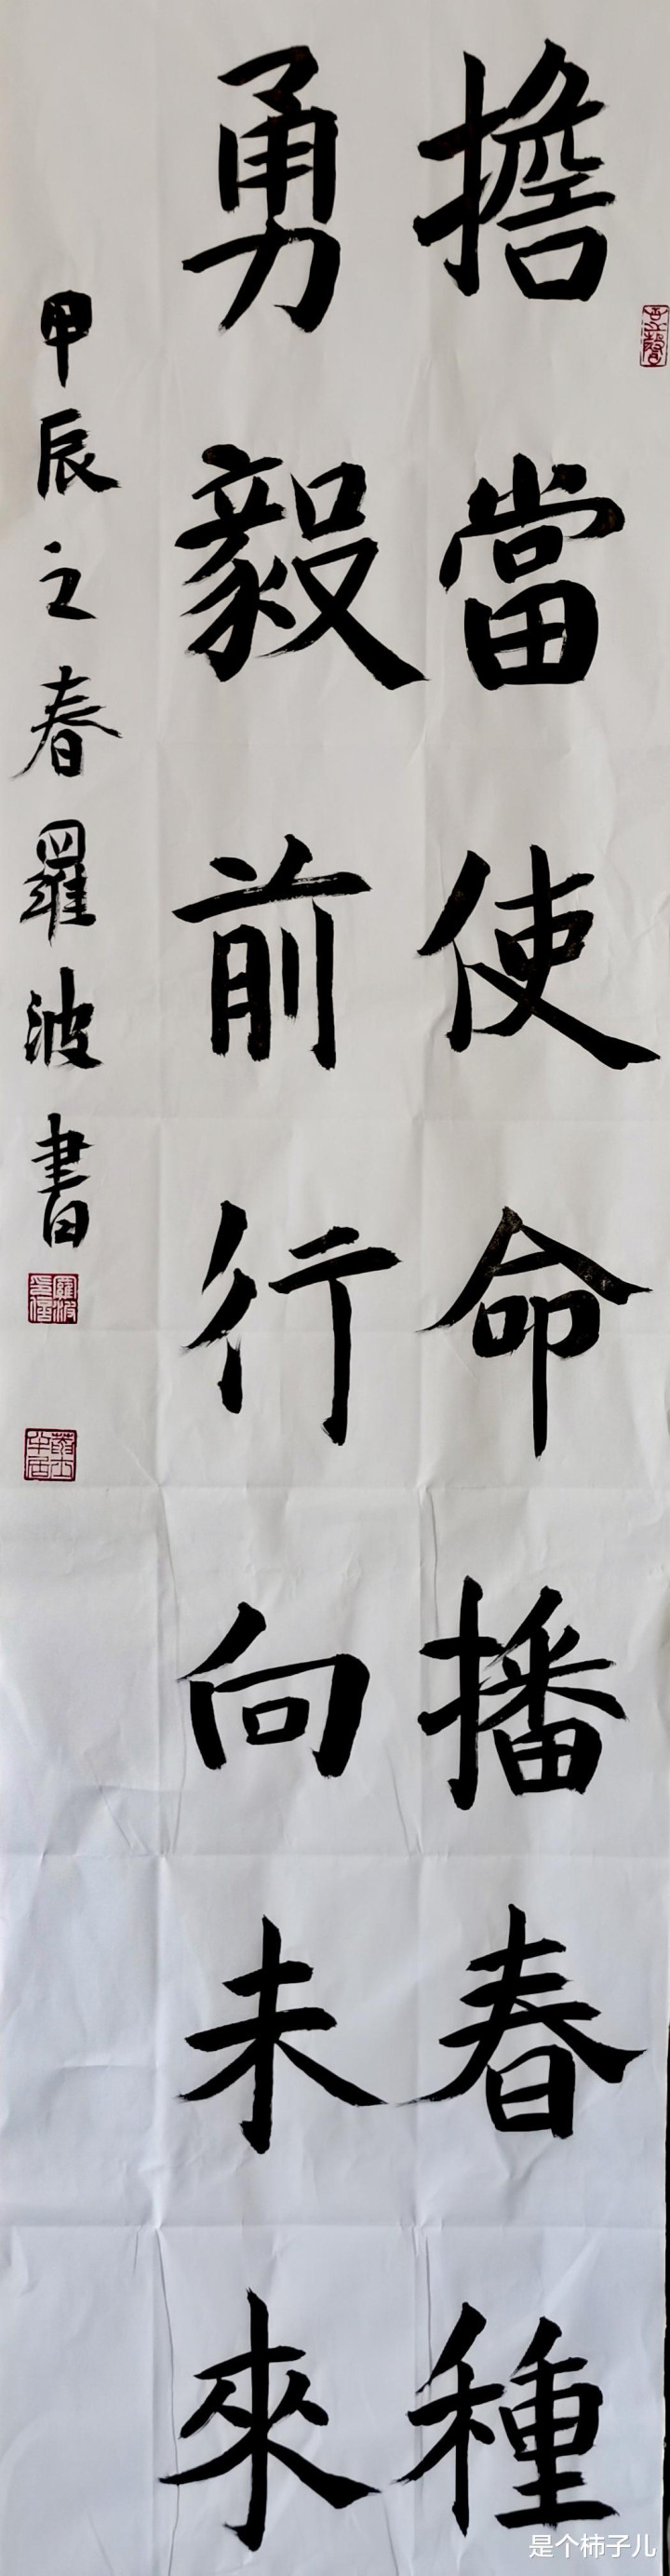 擔當使命播春種
勇毅前行向未來
甲辰之春羅波書
羅波
是个柿子儿